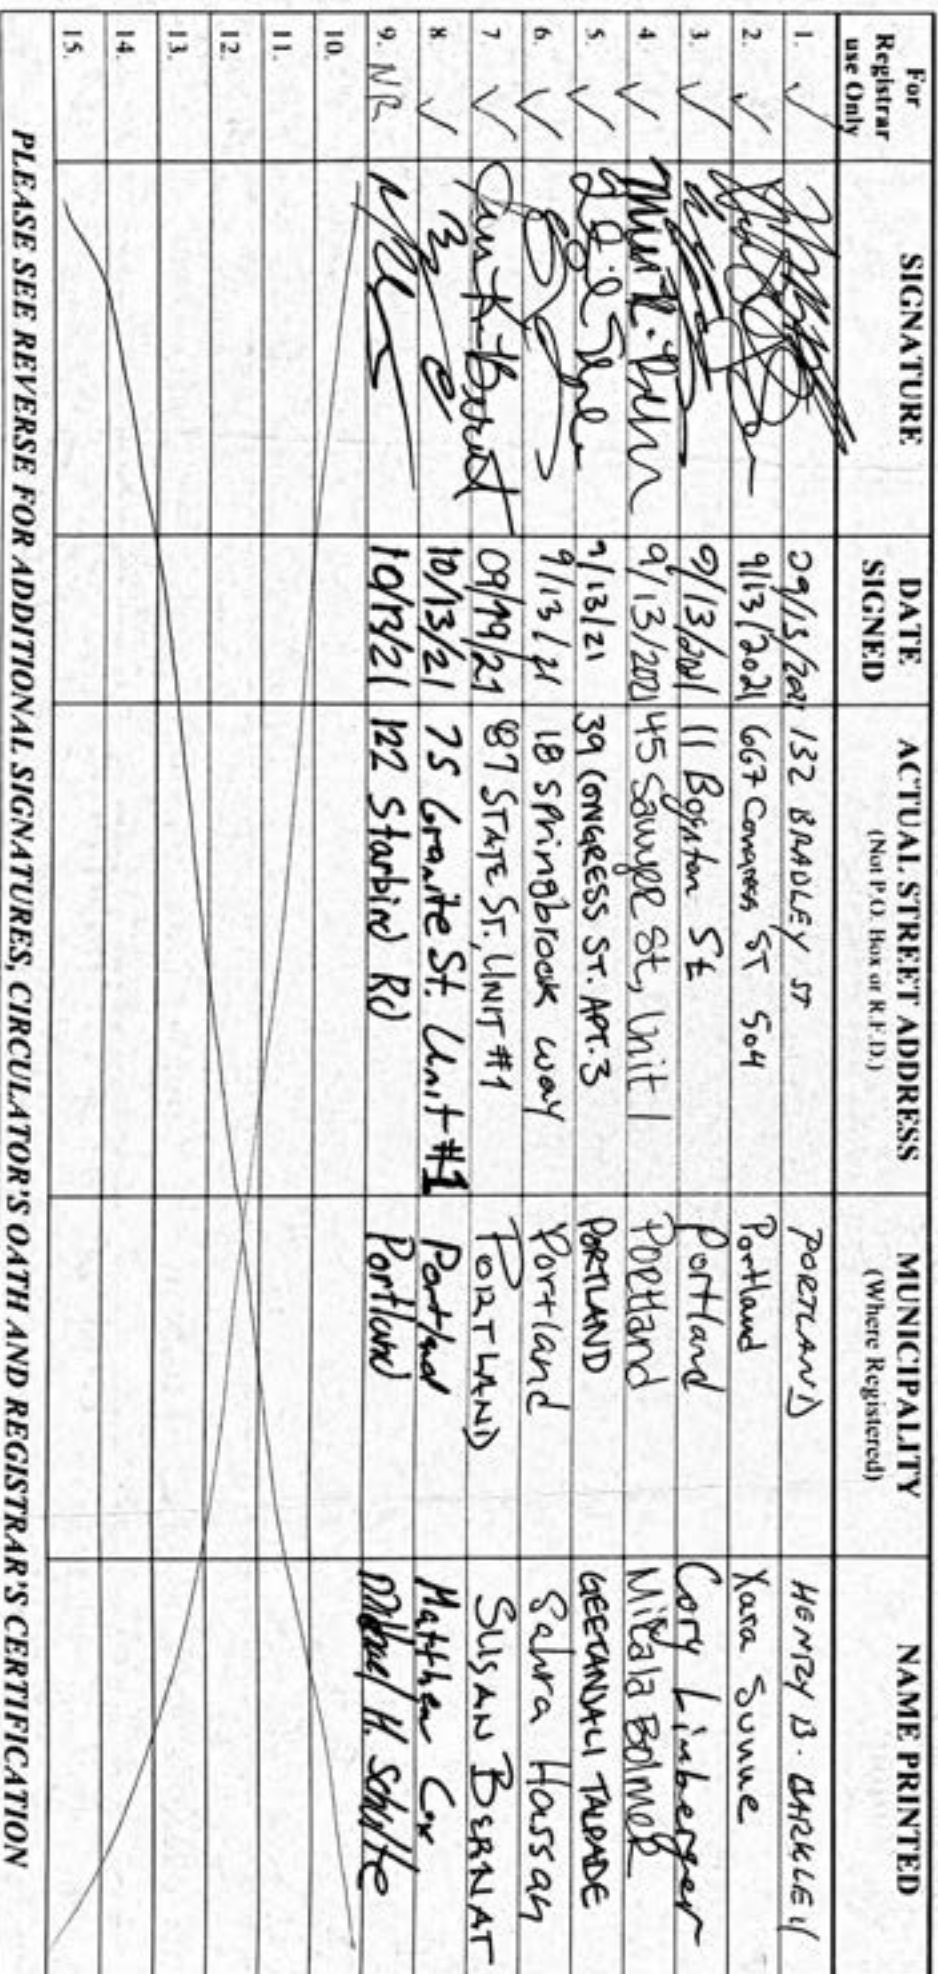 For Registrar use Only SIGNATURE DATE SIGNED ACTUAL STREET ADDRESS (Not P.O. Box or R.F.D.) MUNICIPALITY (Where Registered) NAME PRINTED
1. 132 BRADLEY ST PORTLAND HENRY B.
2. 9/13/2021 667 Congress ST 504 Portland
3. 9/13/2021 11 Boynton St Portland Cory Limberger
4. 9/13/2021 45 Sawyer St, Unit 1 Portland Mikala Bolmer
5. 9/13/21 39 CONGRESS ST. APT. 3 PORTLAND GEETANJALI TALPADE
6. 9/13/21 18 Springbrook way Portland Sahra Hassan
7. 87 STATE ST, UNIT #1 PORTLAND SUSAN BERNAT
8. 10/13/21 75 Granite St. Unit #1 Portland Matthew Cox
9. NR 10/13/21 122 Starbird Rd Portland H. Schulte
10.
11.
12.
13.
14.
15.
PLEASE SEE REVERSE FOR ADDITIONAL SIGNATURES, CIRCULATOR'S OATH AND REGISTRAR'S CERTIFICATION